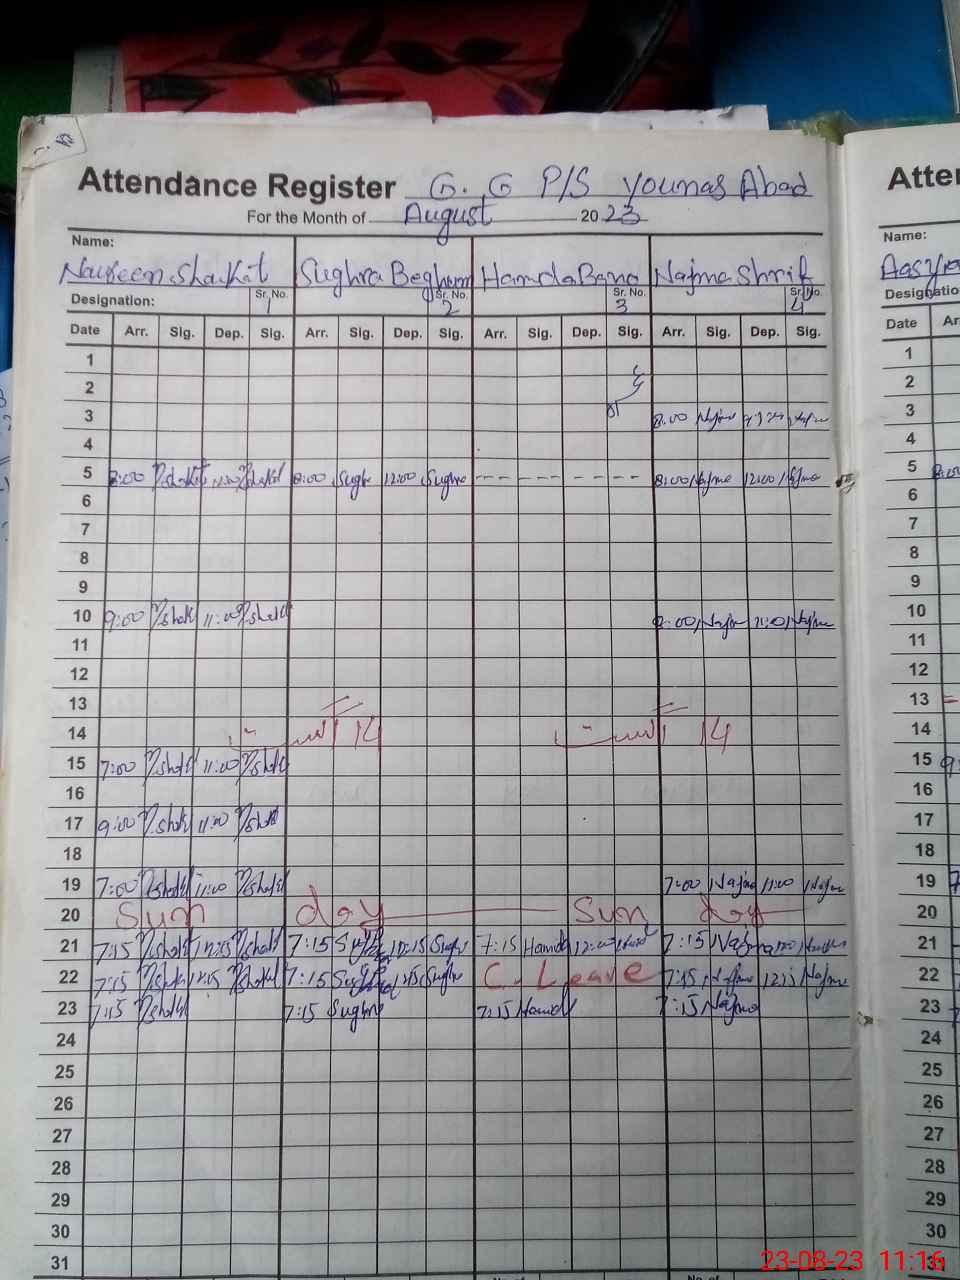 Attendance Register G. G P/S Younas Abad
For the Month of August 2023
Name:
Naureen Shaukat Sughra Beghum Hamda Bano Najma Shrif
Designation: Sr. No. 1 Sr. No. 2 Sr. No. 3 Sr. No. 4
Date Arr. Sig. Dep. Sig. Arr. Sig. Dep. Sig. Arr. Sig. Dep. Sig. Arr. Sig. Dep. Sig.
1
2
3 8:00 Najma
4
5 8:00 N/Shakt 11:00 N/Shakt 8:00 Sughr 12:00 Sughra - - - - - - - - - - 8:00 Najma 12:00 Najma
6
7
8
9
10 9:00 N/Shakt 11:00 N/Shakt 9:00 Najma 11:00 Najma
11
12
13
14 14 اگست 14 اگست
15 7:00 N/Shakt 11:00 N/Shakt
16
17 9:00 N/Shakt 11:00 N/Shakt
18
19 7:00 N/Shakt 11:00 N/Shakt 7:00 Najma 11:00 Najma
20 Sun day Sun day
21 7:15 N/Shakt 12:15 N/Shakt 7:15 Sughra 12:15 Sughr 7:15 Hamda 7:15 Najma
22 7:15 N/Shakt 12:15 N/Shakt 7:15 Sughra 12:15 Sughra C. Leave 7:15 Najma 12:15 Najma
23 7:15 N/Shakt 7:15 Sughra 7:15 Hamda 7:15 Najma
24
25
26
27
28
29
30
31
Atten
Name:
Aasyia
Designatio
Date Ar
1
2
3
4
5
6
7
8
9
10
11
12
13
14
15
16
17
18
19
20
21
22
23
24
25
26
27
28
29
30
23-08-23 11:16